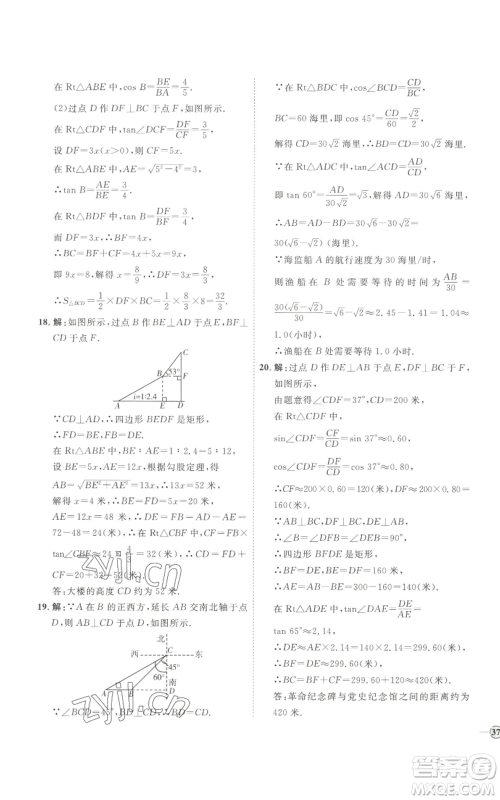 在 Rt△ABE 中，cos B=BE/BA=4/5.
(2)过点 D 作 DF⊥BC 于点 F，如图所示.
在 Rt△CDF 中，tan∠DCF=DF/CF=5/3，
设 DF=3x(x>0)，则 CF=5x.
∵tan B=AE/BE=3/4，
在 Rt△BDF 中，tan B=DF/BF=3/4，
∴BF=4x，∴BC=BF+CF=4x+5x=9x，
即 9x=8，解得 x=8/9，∴DF=3x=8/3，
∴S△BCD=1/2×DF×BC=1/2×8/3×8=32/3.
18.解：如图所示，过点 B 作 BE⊥AD 于点 E，BF⊥CD 于点 F.
C
B 53° F
i=1:2.4
A E D
∵CD⊥AD，∴四边形 BEDF 是矩形.
∴FD=BE，FB=DE.
在 Rt△ABE 中，BE：AE=1：2.4=5：12，
设 BE=5x，AE=12x，根据勾股定理，得
AB=√(BE²+AE²)=13x，∴13x=52(米)，
解得 x=4，∴BE=FD=5x=20(米)，
AE=12x=48(米)，∴DE=FB=AD－AE=
72－48=24(米)，∴在 Rt△CBF 中，CF=FB·
∴CD=
FD+CF=20+32=52(米).
答：大楼的高度 CD 约为 52 米.
19.解：∵A 在 B 的正西方，延长 AB 交南北轴于点
D，则 AB⊥CD 于点 D，如图所示.
北
西 C 东
45°
60° 南
A B D
∵∠BCD=45°，BD⊥CD，∴BD=CD.
∵在 Rt△BDC 中，cos∠BCD=CD/BC，
BC=60 海里，即 cos 45°=CD/60=√2/2，
解得 CD=30√2 海里，∴BD=CD=30√2 海里.
∵在 Rt△ADC 中，tan∠ACD=AD/CD，
即 tan 60°=AD/30√2=√3，解得 AD=30√6 海里.
∵AB=AD－BD，∴AB=30√6－30√2=
30(√6－√2)(海里).
∵海监船 A 的航行速度为 30 海里/小时，
则渔船在 B 处需要等待的时间为 AB/30=
30(√6－√2)/30=√6－√2≈2.45－1.41=1.04≈
1.0(小时)，
∴渔船在 B 处需要等待约 1.0 小时.
20.解：过点 D 作 DE⊥AB 于点 E，DF⊥BC 于点 F，
如图所示，
由题意，得∠CDF=37°，CD=200 米，
在 Rt△CDF 中，
sin∠CDF=CF/CD=sin 37°≈0.60，
cos∠CDF=DF/CD=cos 37°≈0.80，
∴CF≈200×0.60=120(米)，
DF≈200×0.80=160(米).
∵AB⊥BC，DF⊥BC，DE⊥AB，
∴∠B=∠DFB=∠DEB=90°，
∴四边形 BFDE 是矩形.
∴BF=DE，BE=DF=160 米，
∴AE=AB－BE=300－160=140(米).
在 Rt△ADE 中，tan∠ADE=AE/DE=
tan 65°≈2.14，
∴DE=AE×2.14≈140×2.14=299.60(米)，
∴BF=DE=299.60(米)，
∴BC=BF+CF=299.60+120≈420(米)，
答：革命纪念碑与党史纪念馆之间的距离约为
420 米.
37
zyjl.cn
zyjl.cn